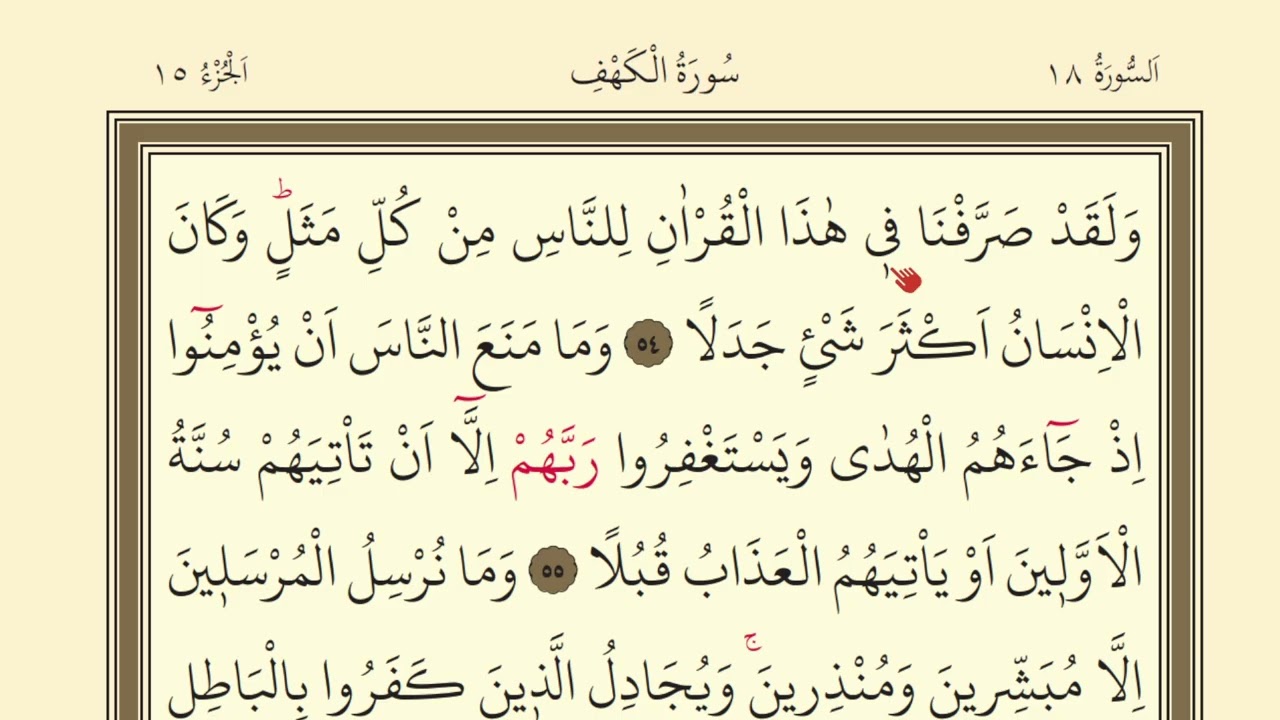 اَلسُّورَةُ ١٨ سُورَةُ الْكَهْفِ اَلْجُزْءُ ١٥
وَلَقَدْ صَرَّفْنَا فٖى هٰذَا الْقُرْاٰنِ لِلنَّاسِ مِنْ كُلِّ مَثَلٍؕ وَكَانَ
الْاِنْسَانُ اَكْثَرَ شَیْئٍ جَدَلًا ٥٤ وَمَا مَنَعَ النَّاسَ اَنْ يُؤْمِنُٓوا
اِذْ جَٓاءَهُمُ الْهُدٰى وَيَسْتَغْفِرُوا رَبَّهُمْ اِلَّٓا اَنْ تَاْتِيَهُمْ سُنَّةُ
الْاَوَّلٖينَ اَوْ يَاْتِيَهُمُ الْعَذَابُ قُبُلًا ٥٥ وَمَا نُرْسِلُ الْمُرْسَلٖينَ
اِلَّا مُبَشِّرٖينَ وَمُنْذِرٖينَۚ وَيُجَادِلُ الَّذٖينَ كَفَرُوا بِالْبَاطِلِ